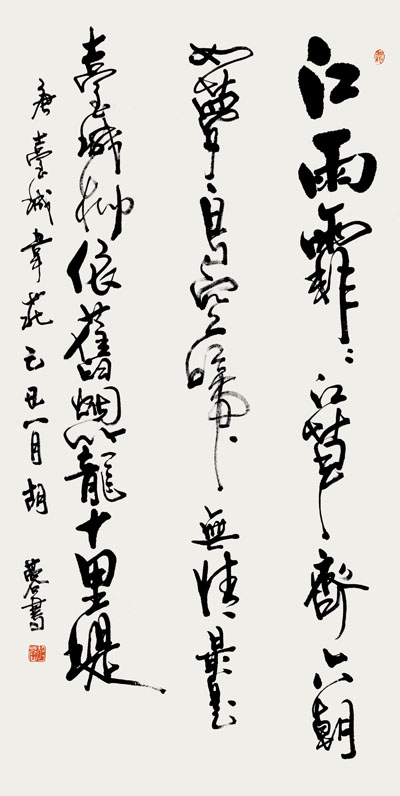 江雨霏霏江草齊六朝
如夢鳥空啼無情最是
臺城柳依舊烟籠十里堤
唐臺城韋莊己丑月胡書